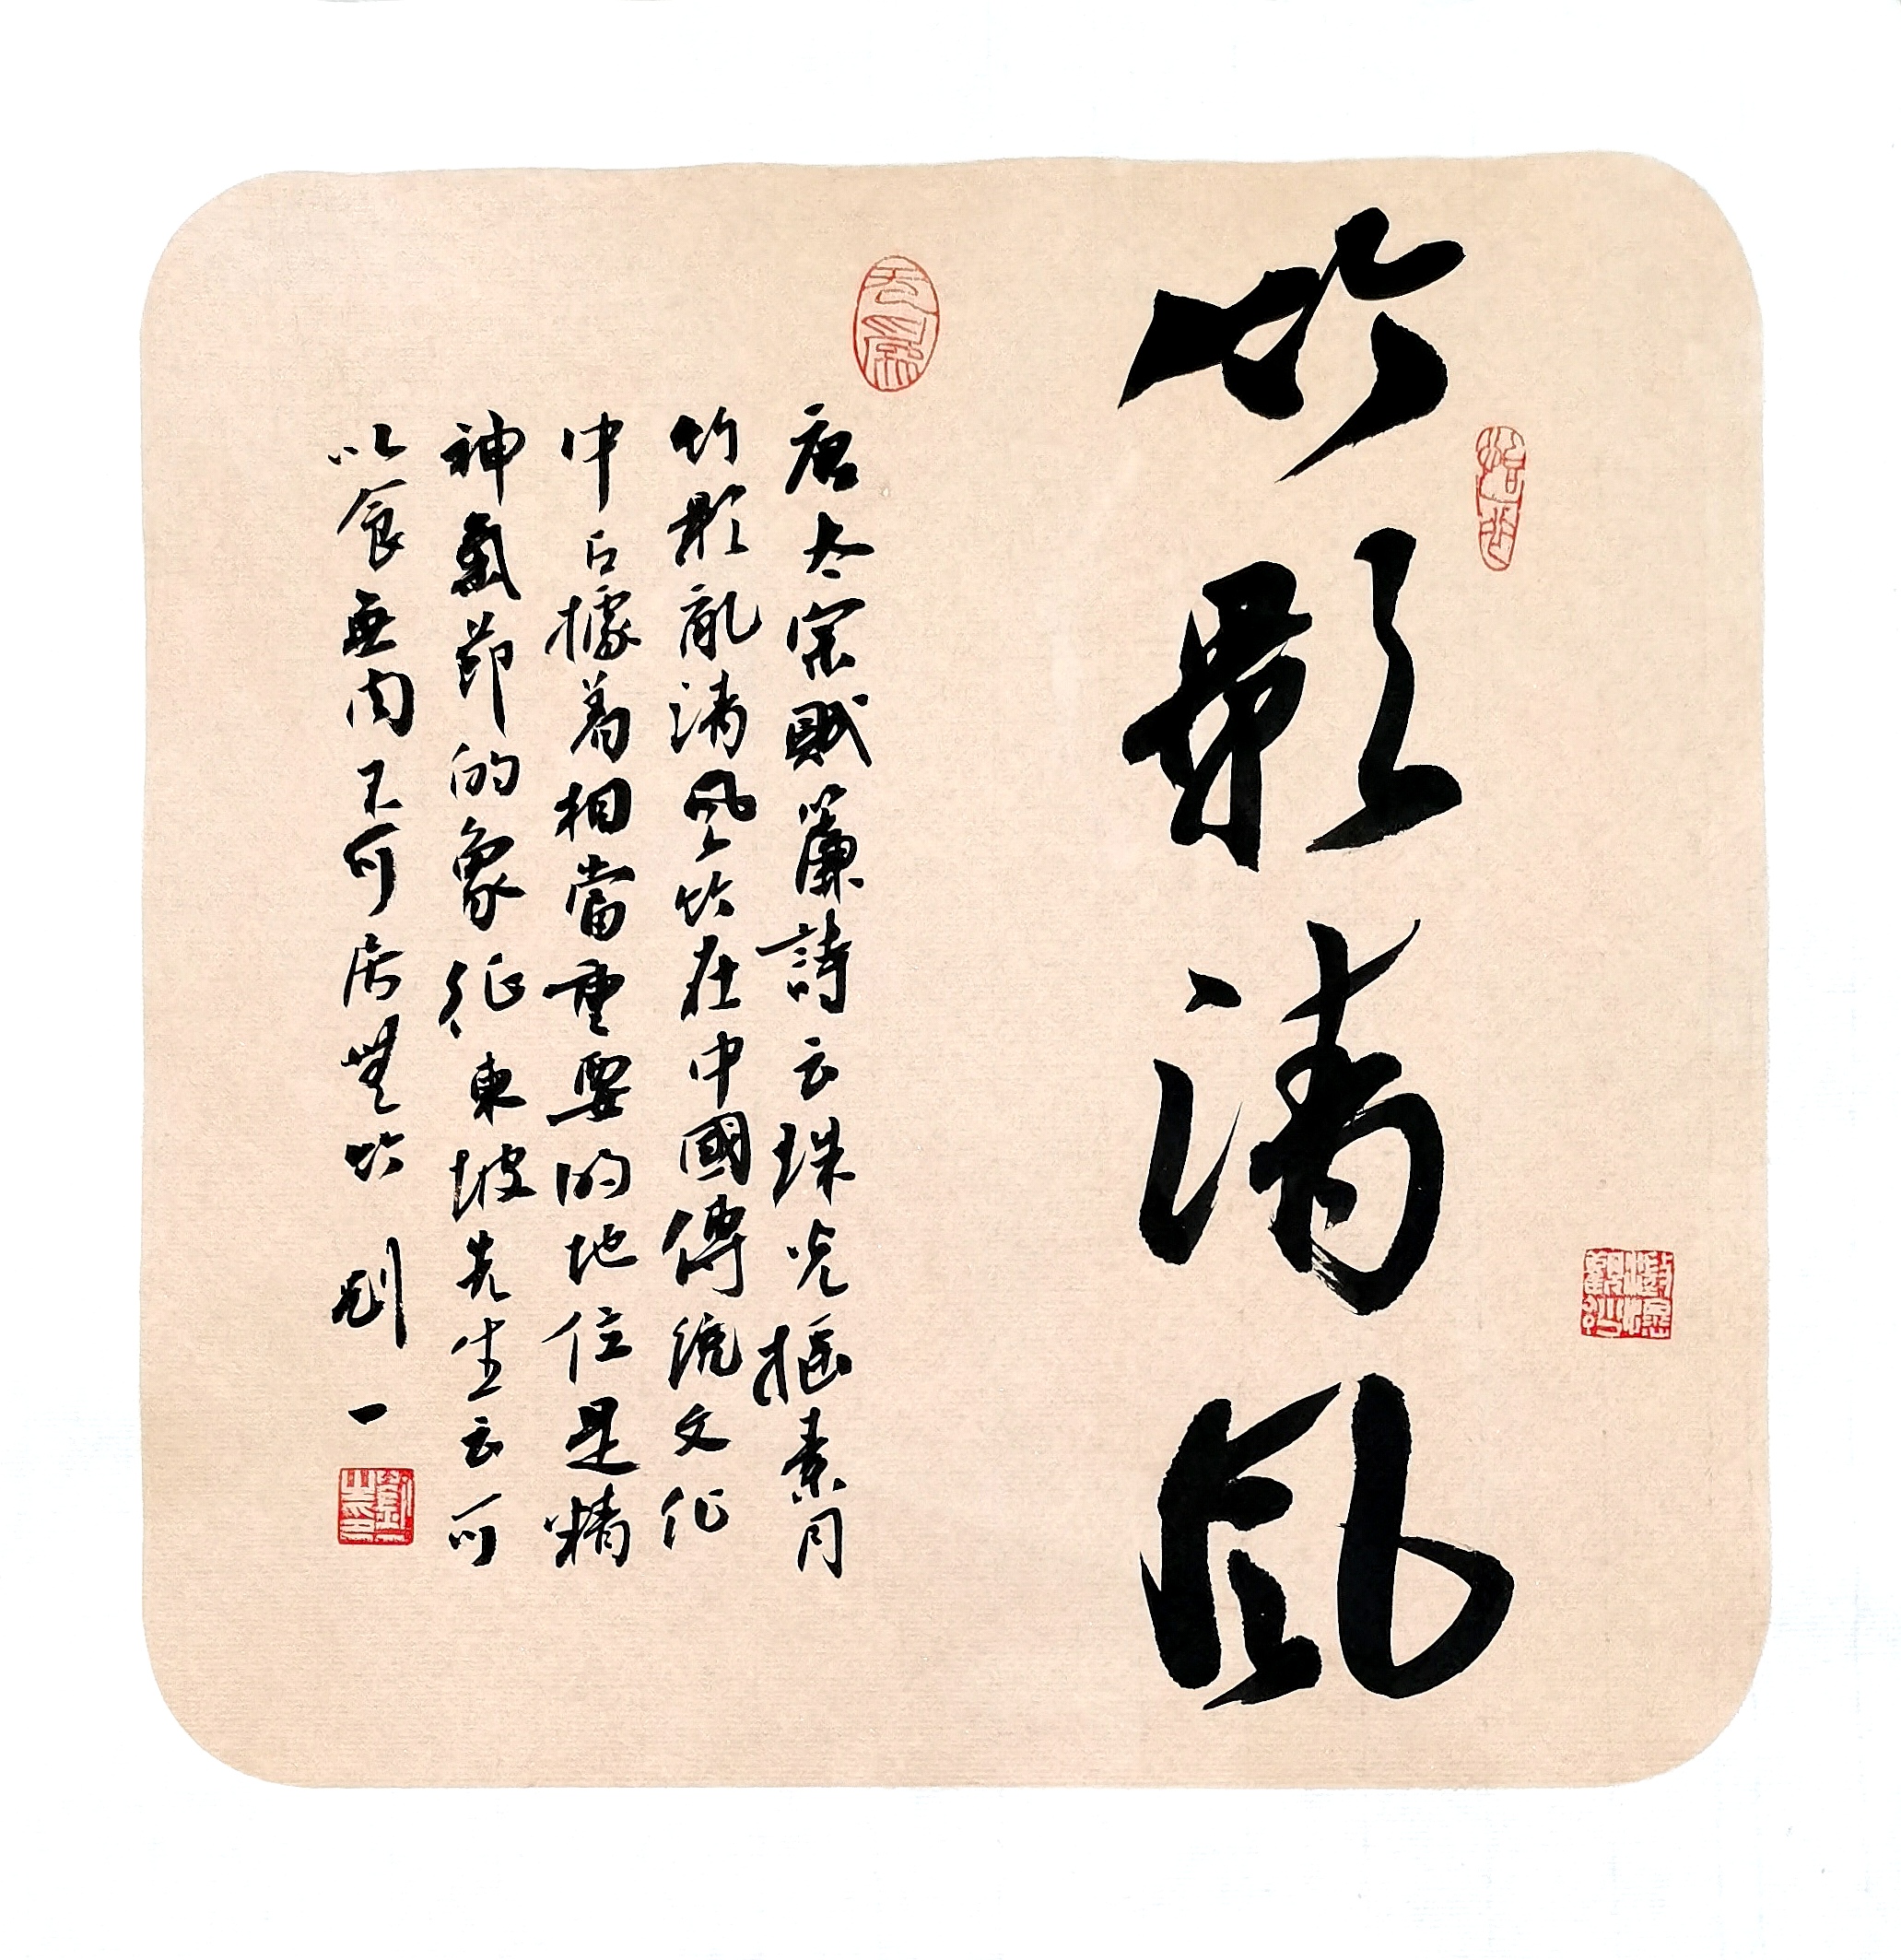 竹影清風
唐太宗賦簾詩云珠光摇素月
竹影亂清风竹在中國傳統文化
中占據着相當重要的地位是精
神氣節的象征東坡先生云可
以食無肉不可居無竹 劉一